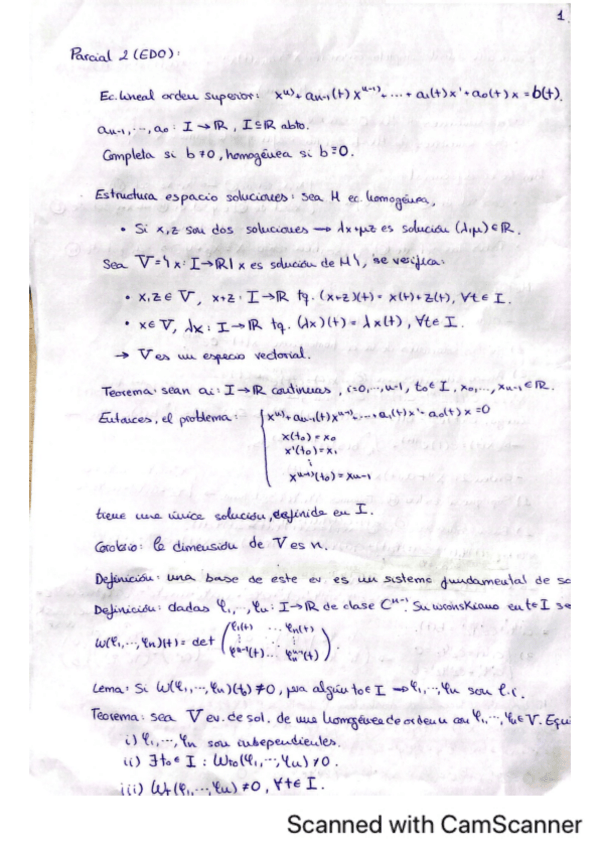 1
Parcial 2 (EDO):
Ec. lineal orden superior: x⁽ⁿ⁾ + aₙ₋₁(t) x⁽ⁿ⁻¹⁾ + ... + a₁(t) x' + a₀(t) x = b(t).
aₙ₋₁, ..., a₀ : I → ℝ, I ⊆ ℝ abto.
Completa si b ≠ 0, homogénea si b ≡ 0.
Estructura espacio soluciones: sea H ec. homogénea,
• Si x, z son dos soluciones → λx + μz es solución (λ, μ) ∈ ℝ.
Sea V = {x : I → ℝ | x es solución de H}, se verifica:
• x, z ∈ V, x+z : I → ℝ tq. (x+z)(t) = x(t) + z(t), ∀t ∈ I.
• x ∈ V, λx : I → ℝ tq. (λx)(t) = λx(t), ∀t ∈ I.
→ V es un espacio vectorial.
Teorema: sean aᵢ : I → ℝ continuas, i=0, ..., n-1, t₀ ∈ I, x₀, ..., xₙ₋₁ ∈ ℝ.
Entonces, el problema: { x⁽ⁿ⁾ + aₙ₋₁(t) x⁽ⁿ⁻¹⁾ + ... + a₁(t) x' + a₀(t) x = 0
x(t₀) = x₀
x'(t₀) = x₁
⋮
x⁽ⁿ⁻¹⁾(t₀) = xₙ₋₁
tiene una única solución, definida en I.
Corolario: la dimensión de V es n.
Definición: una base de este ev. es un sistema fundamental de so
Definición: dadas φ₁, ..., φₙ : I → ℝ de clase Cⁿ⁻¹. Su wronskiano en t ∈ I se
W(φ₁, ..., φₙ)(t) = det ( φ₁(t) ... φₙ(t)
⋮ ⋮
φ₁ⁿ⁻¹(t) ... φₙⁿ⁻¹(t) ).
Lema: Si W(φ₁, ..., φₙ)(t₀) ≠ 0, para algún t₀ ∈ I → φ₁, ..., φₙ son l.i.
Teorema: sea V ev. de sol. de una homogénea de orden n con φ₁, ..., φₙ ∈ V. Equi
i) φ₁, ..., φₙ son independientes.
ii) ∃ t₀ ∈ I : Wt₀(φ₁, ..., φₙ) ≠ 0.
iii) Wt(φ₁, ..., φₙ) ≠ 0, ∀t ∈ I.
Scanned with CamScanner